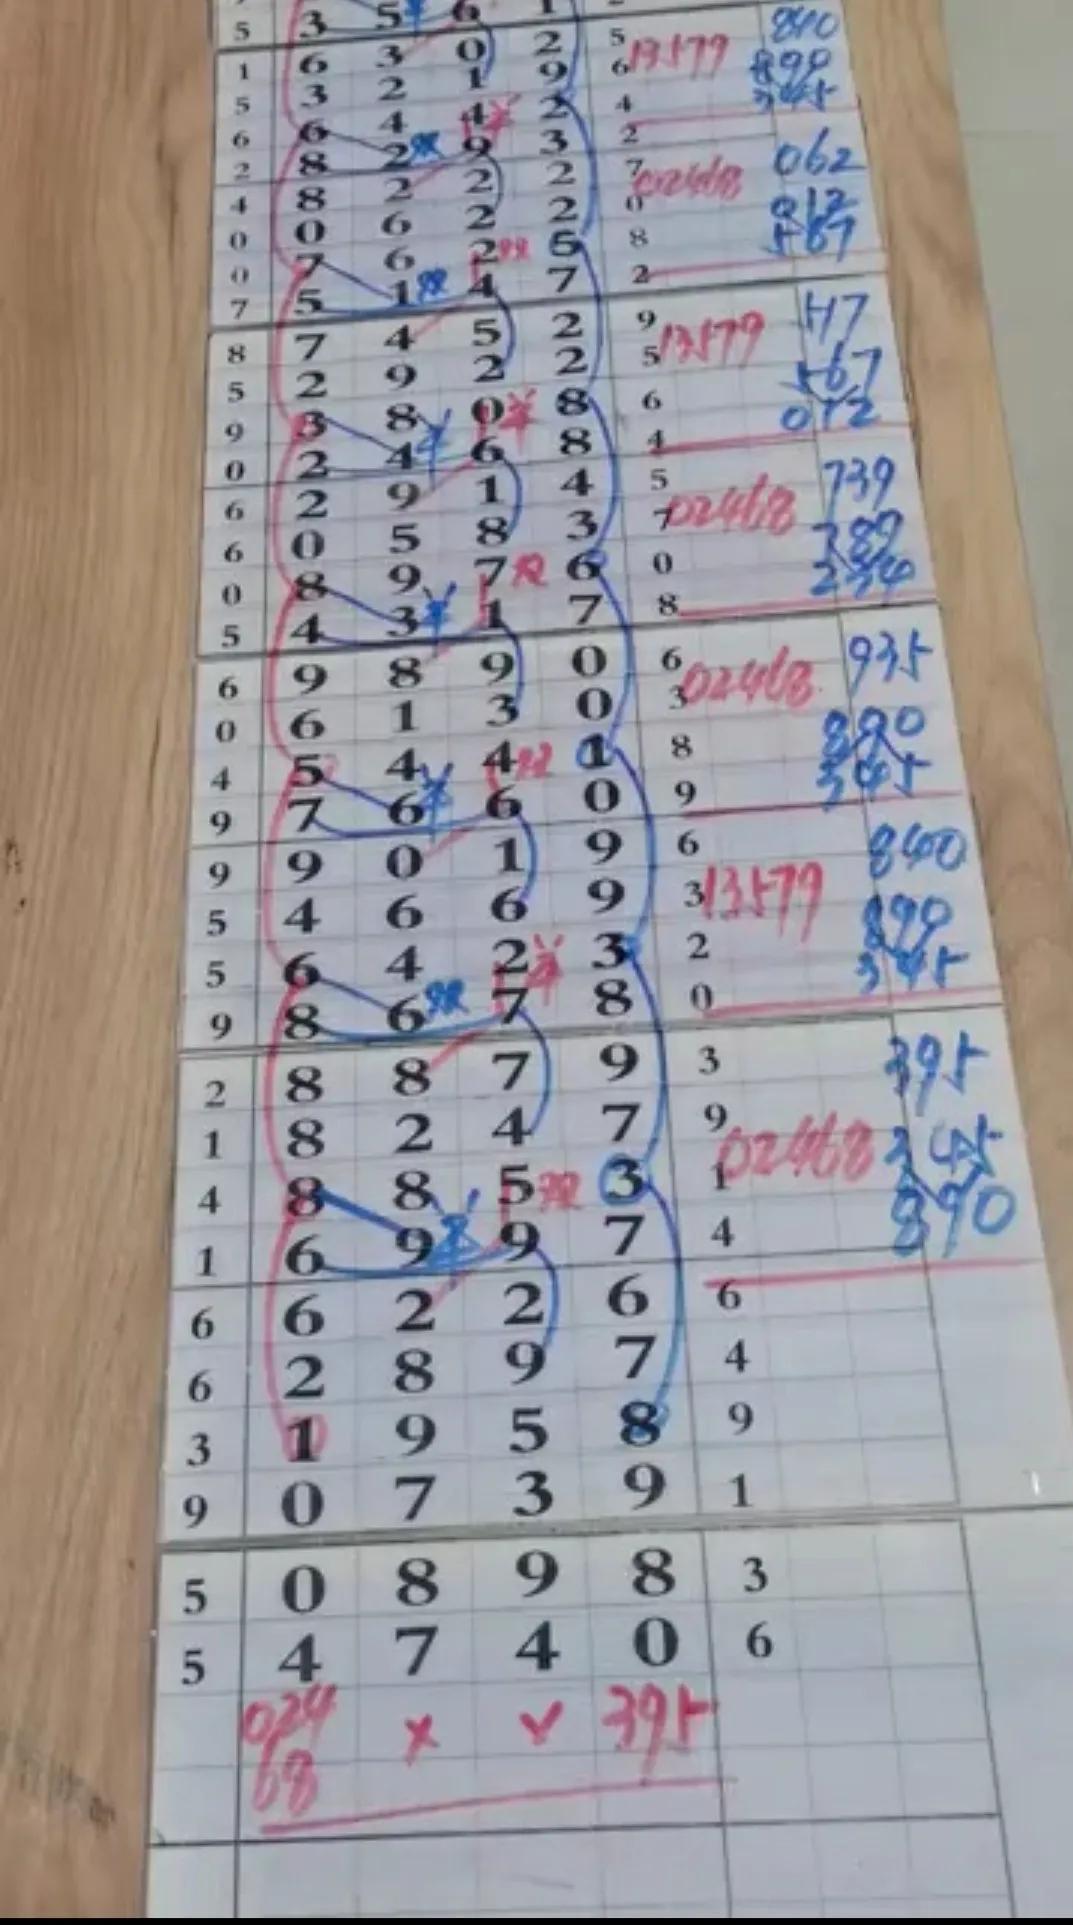 5 3 5 6 1
1 6 3 0 2 5 13579 840
5 3 2 1 9 6 890
6 6 4 4 2 4 345
2 8 2 9 3 2
4 8 2 2 2 7 02468 062
0 0 6 2 2 0 012
0 7 6 2 5 8 567
7 5 1 双 4 7 2
8 7 4 5 2 9 13579
5 2 9 2 2 5 567
9 3 8 0 8 6 012
0 2 4 6 8 4
6 2 9 1 4 5 739
6 0 5 8 3 7 02468 789
0 8 9 7 双 6 0 234
5 4 3 1 7 8
6 9 8 9 0 6 02468 935
0 6 1 3 0 3 890
4 5 4 4 双 1 8 345
9 7 6 6 0 9
9 9 0 1 9 6 840
5 4 6 6 9 3 13579 890
5 6 4 2 3 2 345
9 8 6 双 7 8 0
2 8 8 7 9 3 395
1 8 2 4 7 9 02468 345
4 8 8 5 双 3 1 890
1 6 9 9 7 4
6 6 2 2 6 6
6 2 8 9 7 4
3 1 9 5 8 9
9 0 7 3 9 1
5 0 8 9 8 3
5 4 7 4 0 6
024 × ✓ 395
68